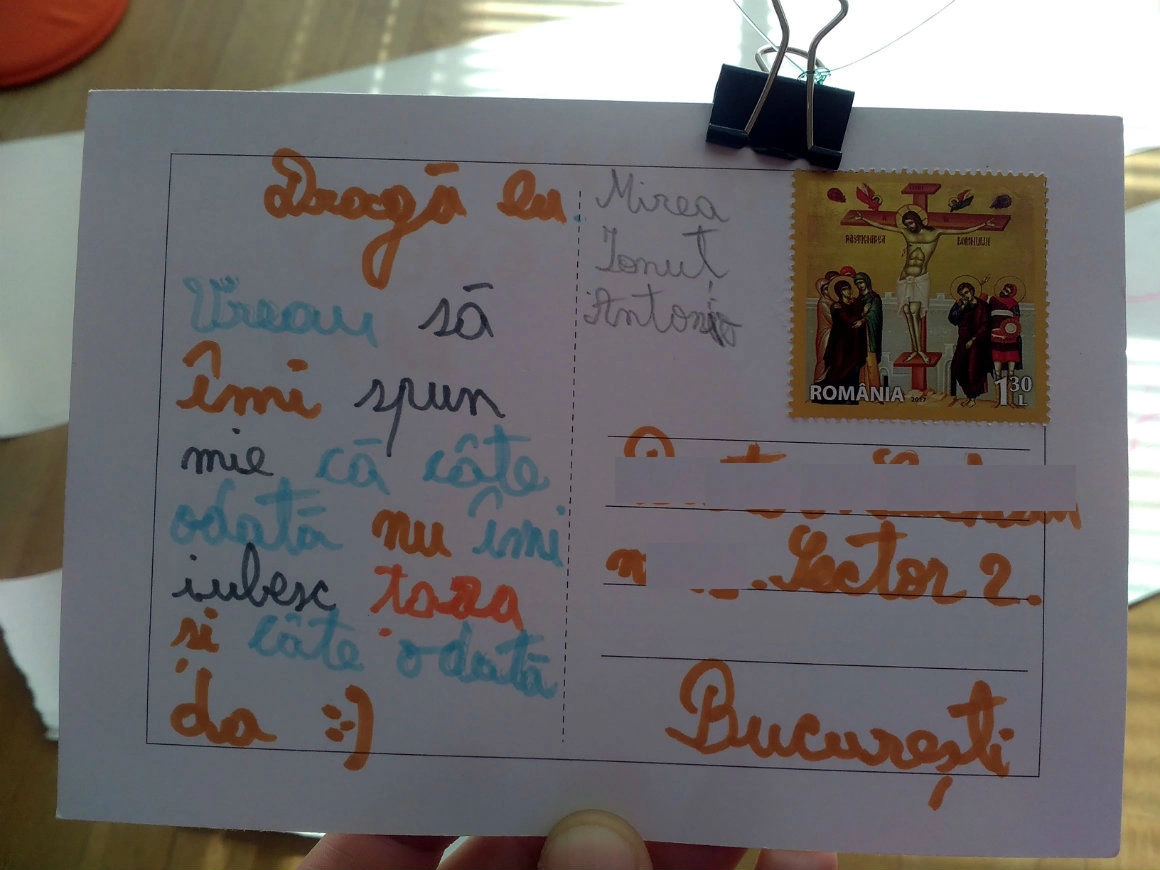 Dragă eu.
Vreau să
îmi spun
mie că câte
odată nu îmi
iubesc tata
și câte odată
da :-)
Mirea
Ionuț
Antonio
RĂSTIGNIREA DOMNULUI
ROMÂNIA 2017 1 30 L
Sector 2.
București